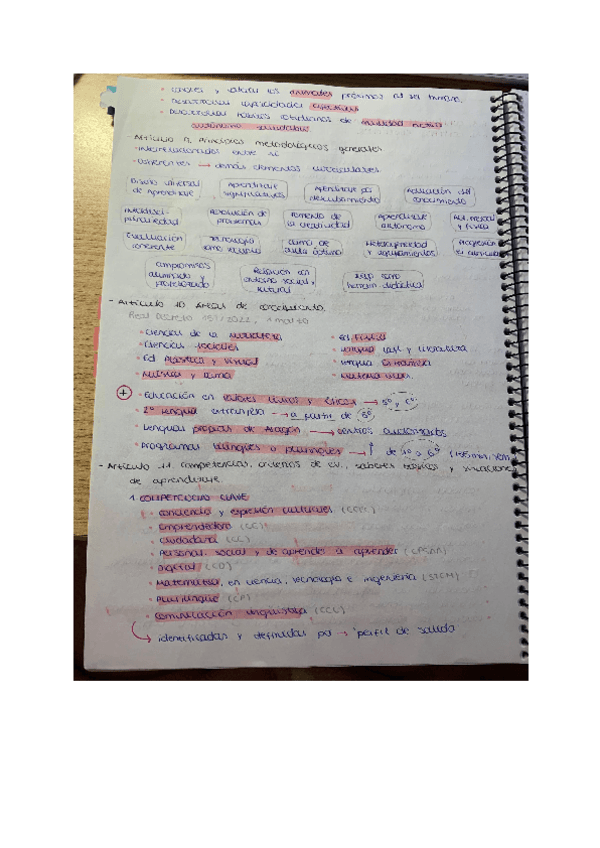 · conocer y valorar los animales próximos al ser humano.
· Desarrollar capacidades afectivas
· Desarrollar hábitos cotidianos de movilidad activa
autónoma saludable
- Artículo 9. Principios metodológicos generales
- Interrelacionados entre sí
- Coherentes → demás elementos curriculares.
Diseño universal de Aprendizaje
Aprendizaje significativos
Aprendizaje por descubrimiento
Aplicación del conocimiento
Interdisciplinariedad
Resolución de problemas
Fomento de la creatividad
Aprendizaje autónomo
Act. mental y física
Evaluación coherente
Tecnología como recurso
Clima de aula óptimo
Heterogeneidad y agrupamientos
Progresión
Compromisos alumnado y profesorado
Relación con entorno social, cultural
Juego como herram. didáctica
- Artículo 10 Áreas de conocimiento.
Real Decreto 157/2022, 1 marzo
· Ciencias de la naturaleza
· Ed Física
· Ciencias sociales
· Lengua cast y Literatura
· Ed Plástica y visual
· Lengua extranjera
· Música y danza
· Matemáticas.
+ · Educación en valores cívicos y éticos → 5º y 6º
· 2ª lengua extranjera --→ a partir de 5º
· Lenguas propias de Aragón → centros autorizados
· Programas bilingües o plurilingües → de 1º a 6º
- Artículo 11 competencias, criterios de ev., saberes básicos y situaciones
de aprendizaje.
1. COMPETENCIAS CLAVE
· Conciencia y expresión culturales (CCEC)
· Emprendedora (CE)
· Ciudadana (CC)
· Personal, social y de aprender a aprender (CPSAA)
· Digital (CD)
· Matemática, en ciencia, tecnología e ingeniería (STEM)
· Plurilingüe (CP)
· Comunicación lingüística (CCL)
→ identificadas y definidas por → perfil de salida